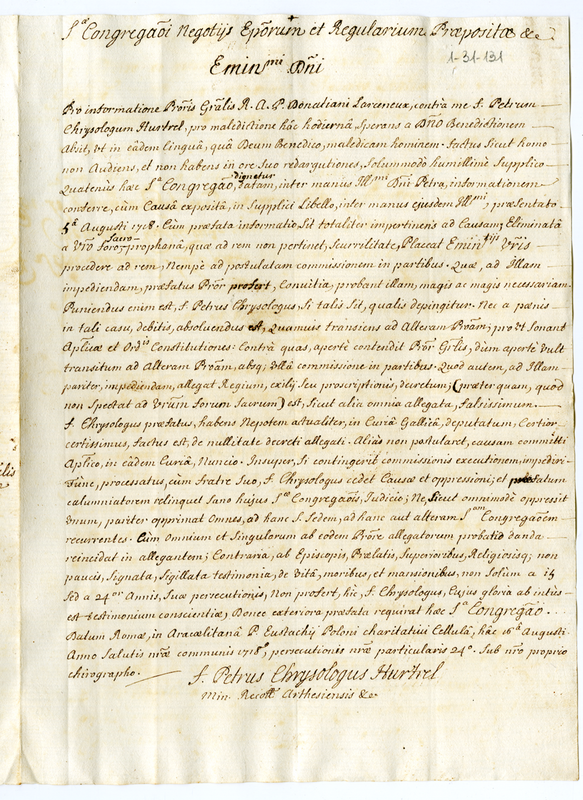 Sᵃ Congregaõi Negotijs Epõrum et Regularium Præpositæ &c
1-31-131
Eminᵐⁱ Dñi
Pro informatione Prõris Grãlis R. A. P. Donatiani Larceneux, contra me f. Petrum
Chrysologum Hurtrel, pro maledictione hâc hodiernâ, Sperans a Dño Benedictionem
Absit, vt in eâdem Linguâ, quâ Deum Benedico, maledicam hominem. factus sicut homo
non Audiens, et non habens in ore Suo redargutiones, Solummodo humillimè Supplico
Quatenùs hæc Sᵃ Congregaõ, dignetur datam, inter manus Illᵐⁱ Dni Petra, informationem
conferre, cùm Causâ expositâ, in Supplici Libello, inter manus ejusdem Illᵐⁱ, præsentato
5ᵃ Augusti 1718. Cùm præfata informatio, Sit totaliter impertinens ad Causam; Eliminatâ
a Vr̃o foro, sacro- prophanâ, quæ ad rem non pertinet, Scurrilitate, Placeat Eminᵗⁱʲˢ Vr̃is
procedere ad rem, Nempè ad postulatam commissionem in partibus. Quæ, ad Illam
impediendam, præfatus Prõr profert, Convitia, probant illam, magis ac magis necessariam.
Puniendus enim est, f. Petrus Chrysologus, Si talis Sit, qualis depingitur. Nec a pænis
in tali casu, debitis, absoluendus est, Quamuis transiens ad Alteram Pr̃am; pro vt Sonant
Aplicæ et Ordⁱˢ Constitutiones: Contrà quas, apertè contendit Prõr Grlis, dùm apertè vult
transitum ad Alteram Prõam, absq; vllâ commissione in partibus. Quod autem, ad Illam
pariter, impediendam, allegat Regium, exilij Seu proscriptionis, decretum; (præter quam, quod
non Spectat ad Vr̃am forum Sacrum) est, Sicut alia omnia allegata, falsissimum.
f. Chrysologus præfatus, habens Nepotem actualiter, in Curiâ Gallicâ, deputatum, Certior,
certissimus, factus est, de nullitate decreti allegati. Aliàs non postularet, causam committi
Aplico, in eâdem Curiâ, Nuncio. Insuper, Si contingerit commissionis executionem, impediri
Tunc, processatus, cùm fratre Suo, f. Chrysologus cedet Causæ et oppressioni; et præfatum
calumniatorem relinquet Sano hujus Sᵃᵉ Congregaõis, Iudicio; Ne, Sicut omnimodè oppressit
Vnum, pariter opprimat Omnes, ad hanc S. Sedem, ad hanc aut alteram Sᵃᵐ Congregaõem
recurrentes. Cùm Omnium et Singulorum ab eodem Prõre allegatorum probatio danda
reincidat in allegantem; Contraria, ab Episcopis, Prælatis, Superioribus, Religiosisq; non
paucis, Signata, Sigillata testimonia, de vitâ, moribus, et mansionibus, non Solùm a 15
Sed a 24ᵒʳ Annis, Suæ persecutionis, Non profert, hic, f. Chrysologus, Cujus gloria ab intùs
est testimonium conscientiæ, Donec exteriora præfata requirat hæc Sᵃ Congregaõ.
Datum Romæ, in Aracælitanâ P. Eustachij Poloni charitatiui Cellulâ, hâc 16ᵃ Augusti
Anno Salutis nr̃æ communis 1718°, persecutionis nr̃æ particularis 24°. Sub nr̃o proprio
chirographo.
f. Petrus Chrysologus Hurtrel
Min. Recollᵗ Arthesiensis &c